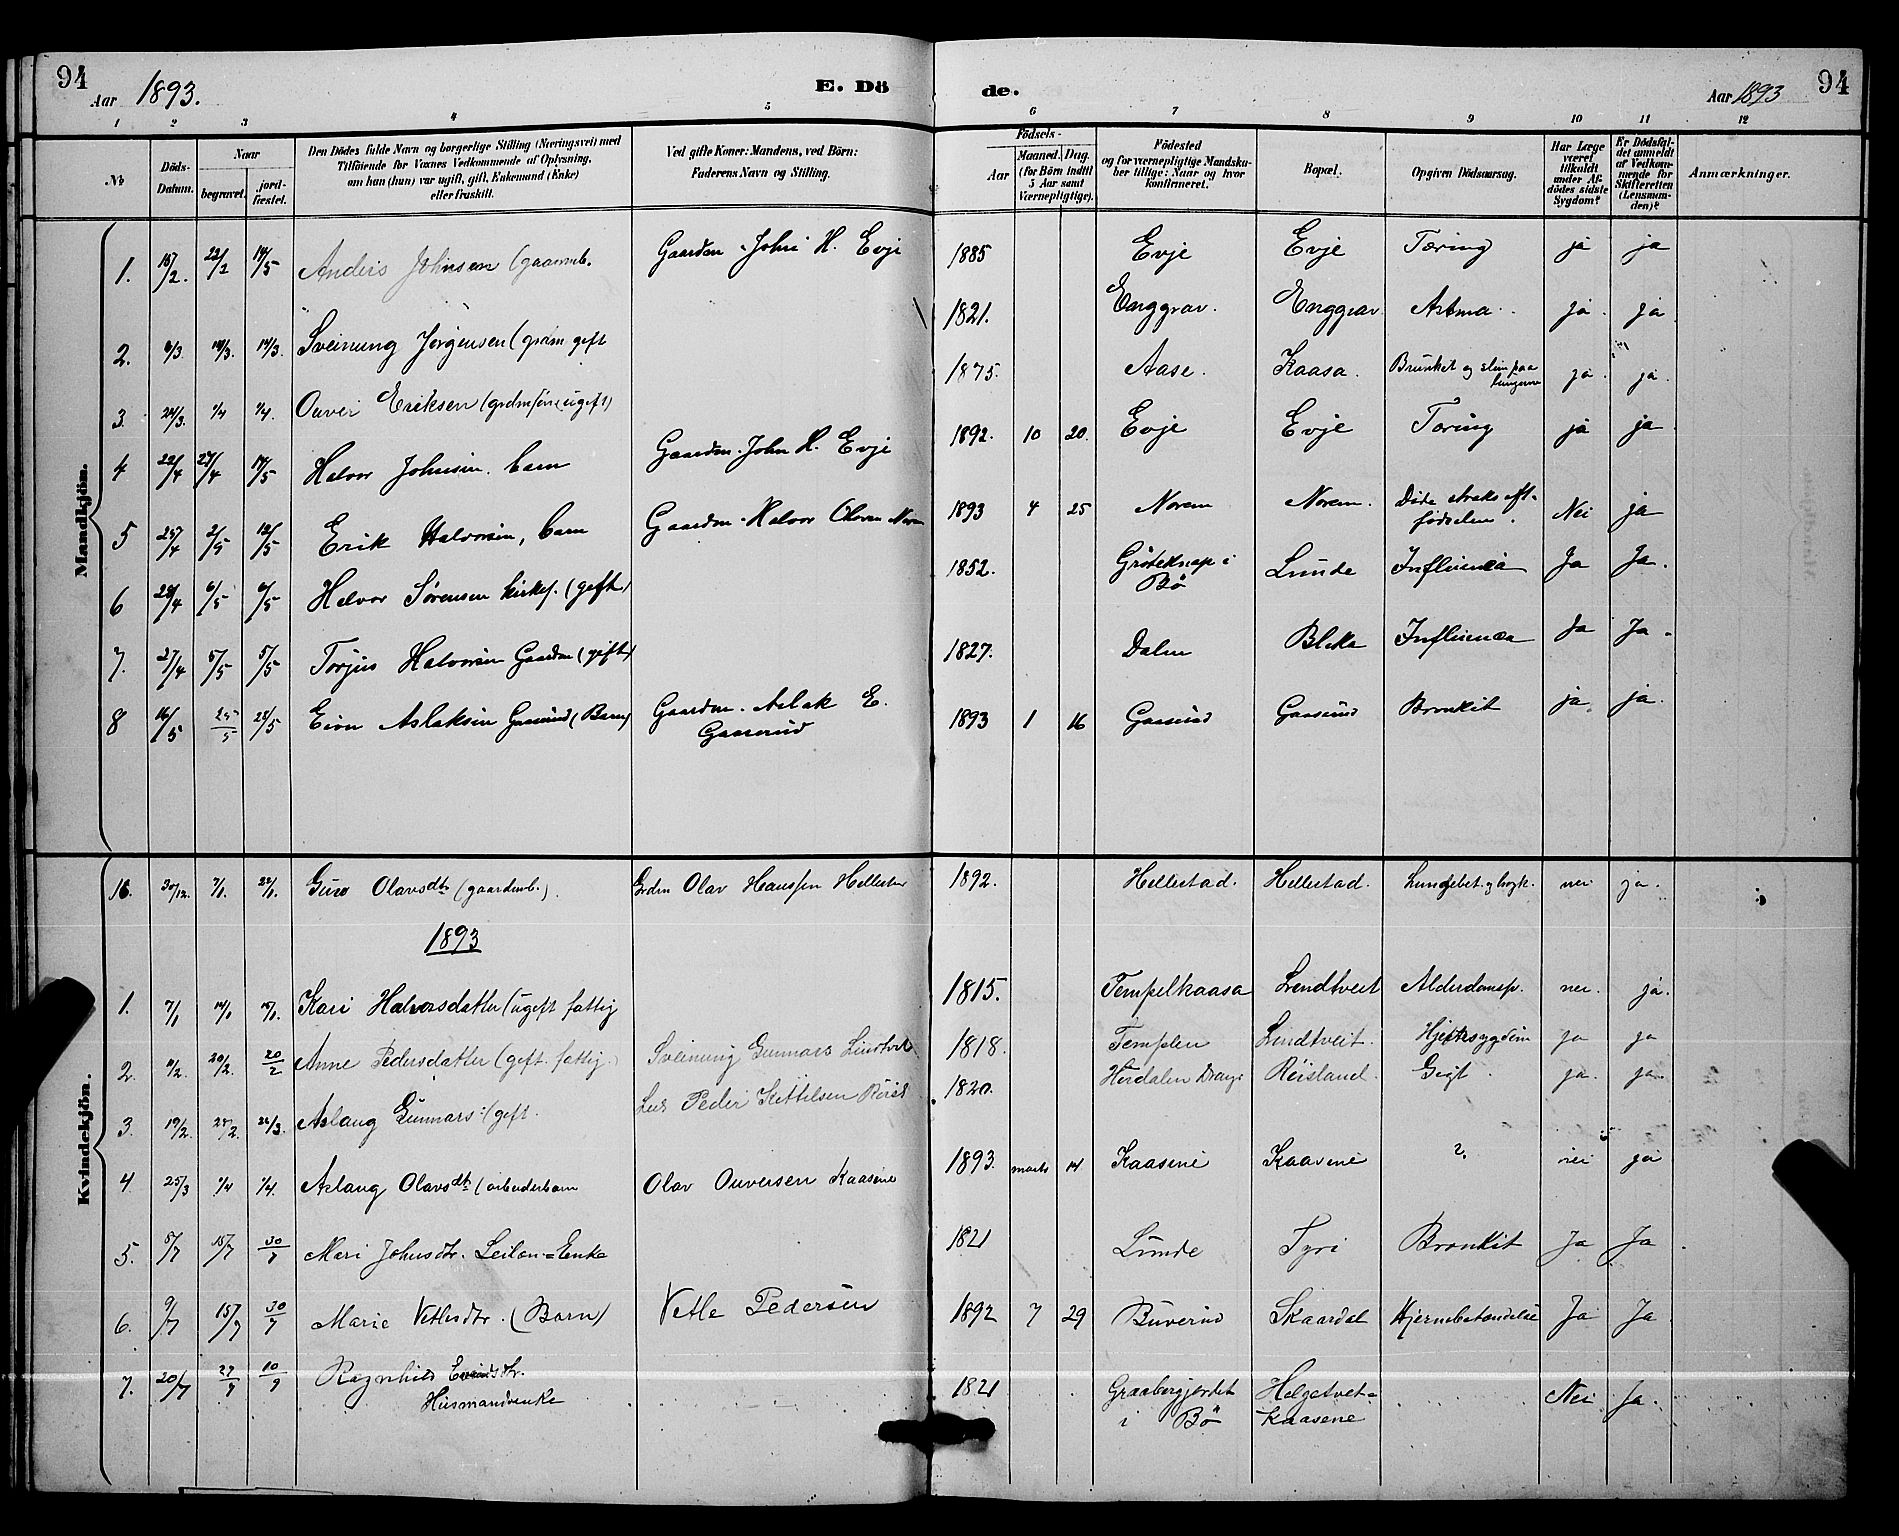 94
Aar 1893.
E. Dö
de.
Aar 1893
94
1 2 3 4 5 6 7 8 9 10 11 12
No.
Döds-Datum.
Naar
begravet.
jord-fæstet.
Den Dödes fulde Navn og borgerlige Stilling (Næringsvei) med
Tilföiende for Voxnes Vedkommende af Oplysning,
om han (hun) var ugift, gift, Enkemand (Enke)
eller fraskilt.
Ved gifte Koner: Mandens, ved Börn:
Faderens Navn og Stilling.
Födsels-
Aar
Maaned. Dag.
(for Börn indtil
5 Aar samt
Værnepligtige).
Födested
og for værnepligtige Mandska-
ber tillige: Naar og hvor
konfirmeret.
Bopæl.
Opgiven Dödsaarsag.
Har Læge
været
tilkaldt
under Af-
dödes sidste
Sygdom?
Er Dödsfal-
det anmeldt
af Vedkom-
mende for
Skifteretten
(Lensman-
den)?
Anmærkninger.
Mandkjön.
1. 15/2. 22/2 14/5 Anders Johnsen (gaarmb. Gaardm. John H. Evje 1885 Evje Evje Tæring ja ja
2. 6/3. 14/3. 14/3. Sveinung Jørgensen (grdm gift 1821. Enggrav. Enggrav Astma. ja. ja
3. 24/3. 1/4 1/4. Ouver Eriksen (grdmsøn, ugift) 1875. Aase. Kaasa. Brunket og slim paa lungerne ja. ja.
4 22/4 27/4 14/5 Halvor Johnsen. barn Gaardm. John H. Evje 1892. 10 20. Evje Evje Tæring ja ja
5 25/4 2/5 12/5 Erik Halvorsen, barn Gaardm. Halvor Olsen Norem 1893 4 25 Norem Norem. Døde straks eft. fødselen. Nei ja
6 28/4 6/5 6/5 Halvor Sørensen kirkes. (gift) 1852. Grøteknap i Bø Lunde Influenca Ja Ja.
7. 27/4 5/5 5/5 Torjus Halvorsen Gaardm (gift) 1827. Dalen Bleka Influenca Ja Ja.
8 16/5 25/5 28/5 Eivn Aslaksen Gaasrud (Barn) Gaardm. Aslak E. Gaasrud 1893 1 16 Gaasrud Gaasrud Bronkit ja. ja.
Kvindekjön.
16. 30/12. 7/1. 22/1. Guro Olavsdt. (gaardmb.). Grdm Olav Hanssen Hellestad 1892. Hellestad. Hellestad. Lungebet. nei ja.
1893
1. 7/1 14/1 15/1. Kari Halvorsdatter (ugift fattig 1815. Tempelkaasa Lindtveit Alderdomsp. nei. ja.
2. 11/2. 20/2. 20/2 Anne Pedersdatter (gift. fattig.) Sveinung Gunnars Lindtveit 1818. Templen Lindtveit. Hjertesygdom ja ja
3. 19/2. 27/2. 26/3. Aslaug Gunnars: (gift. Peder Kittilsen 1820. Herdalen Drang. Reisland. Gigt. ja. ja.
4 25/3 1/4 1/4. Aslaug Olavsdt. (arbeiderbarn Olav Ouversen Kaasene 1893. marts 14. Kaasene Kaasene ?. nei ja
5. 5/7 15/7 30/7 Mari Johnsdtr. Leilen.=Enke 1821 Lunde Tyri Bronkit Ja Ja
6. 9/7 15/7 30/7 Marie Vetlesdtr. (Barn) Vetle Pedersen 1892 7 29 Buverud Skaardal Hjernebetændelse Ja Ja
7. 20/7 27/7 10/9 Ragnhild Eivindsdtr. Husmandsenke 1821 Graabergjordet i Bø Helgetvet=Kaasene Nei Ja.